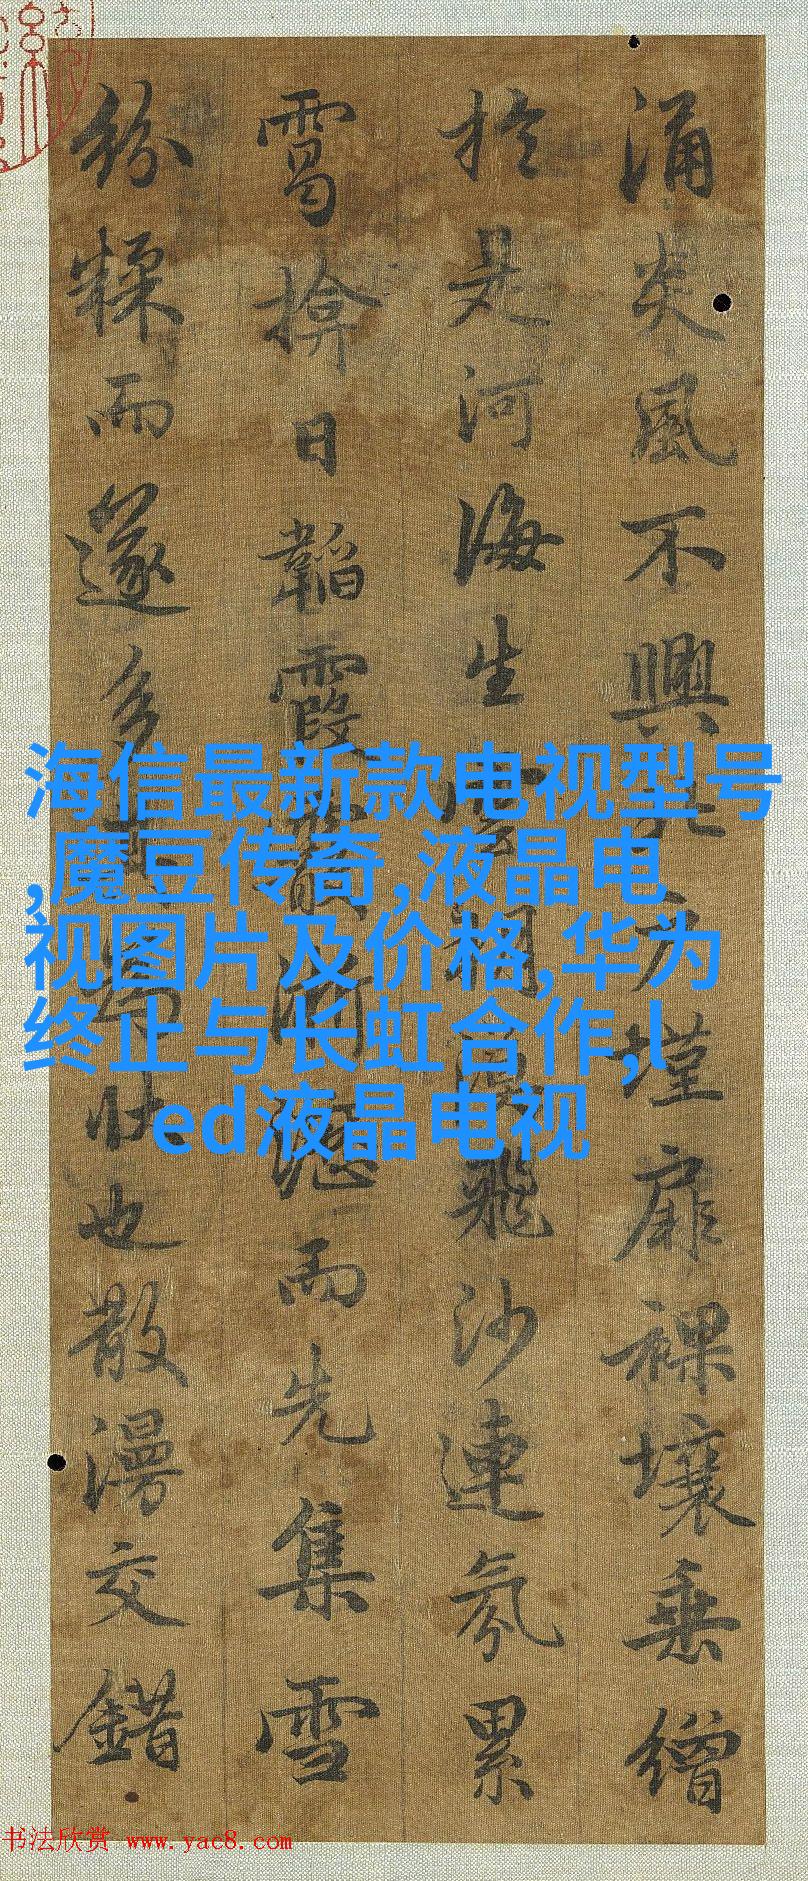 涌炎風不興北户墐扉裸壤垂繒
於是河海生雲朔漠飛沙連氛累
靄揜日韜霞霰淅瀝而先集雪
紛糅而遂多其為狀也散漫交錯
海信最新款电视型号
,魔豆传奇,液晶电
视图片及价格,华为
终止与长虹合作,l
ed液晶电视
书法欣赏 www.yac8.com